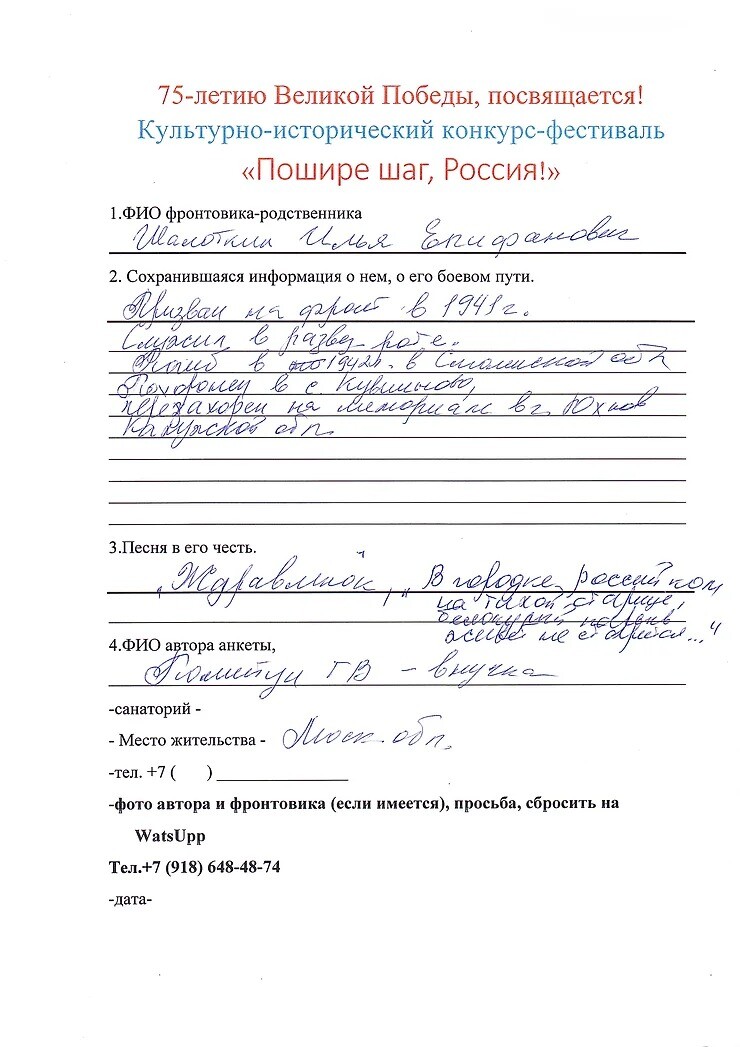 75-летию Великой Победы, посвящается!
Культурно-исторический конкурс-фестиваль
«Пошире шаг, Россия!»
1.ФИО фронтовика-родственника
Шалоткин Илья Епифанович
2. Сохранившаяся информация о нем, о его боевом пути.
Призван на фронт в 1941 г.
Служил в развед роте.
Погиб в 1942г. в Смоленской обл
Похоронен в с.
перезахорен на мемориале в г. Юхнов
Калужской обл.
3.Песня в его честь.
"Журавлёнок", "В городке российском
на тихой старице,
белокурый парень
живет не старится..."
4.ФИО автора анкеты,
ГВ - внучка
-санаторий -
- Место жительства - Моск. обл.
-тел. +7 ( ) _______________
-фото автора и фронтовика (если имеется), просьба, сбросить на
WatsUpp
Тел.+7 (918) 648-48-74
-дата-